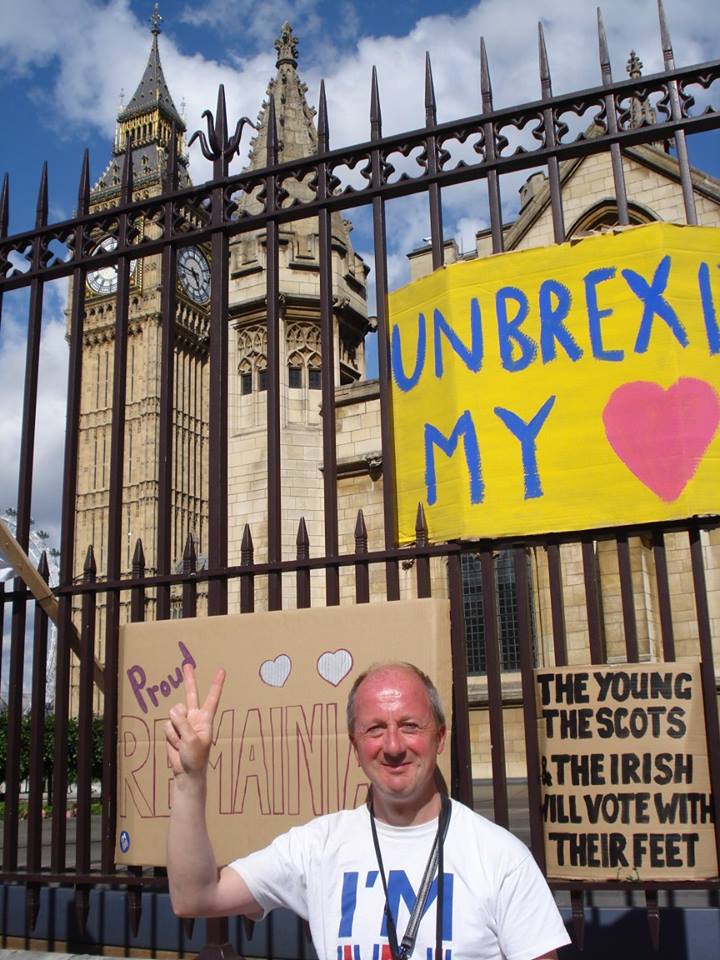 UNBREXI
MY
Proud
REMAINIA
THE YOUNG
THE SCOTS
& THE IRISH
WILL VOTE WITH
THEIR FEET
I'M